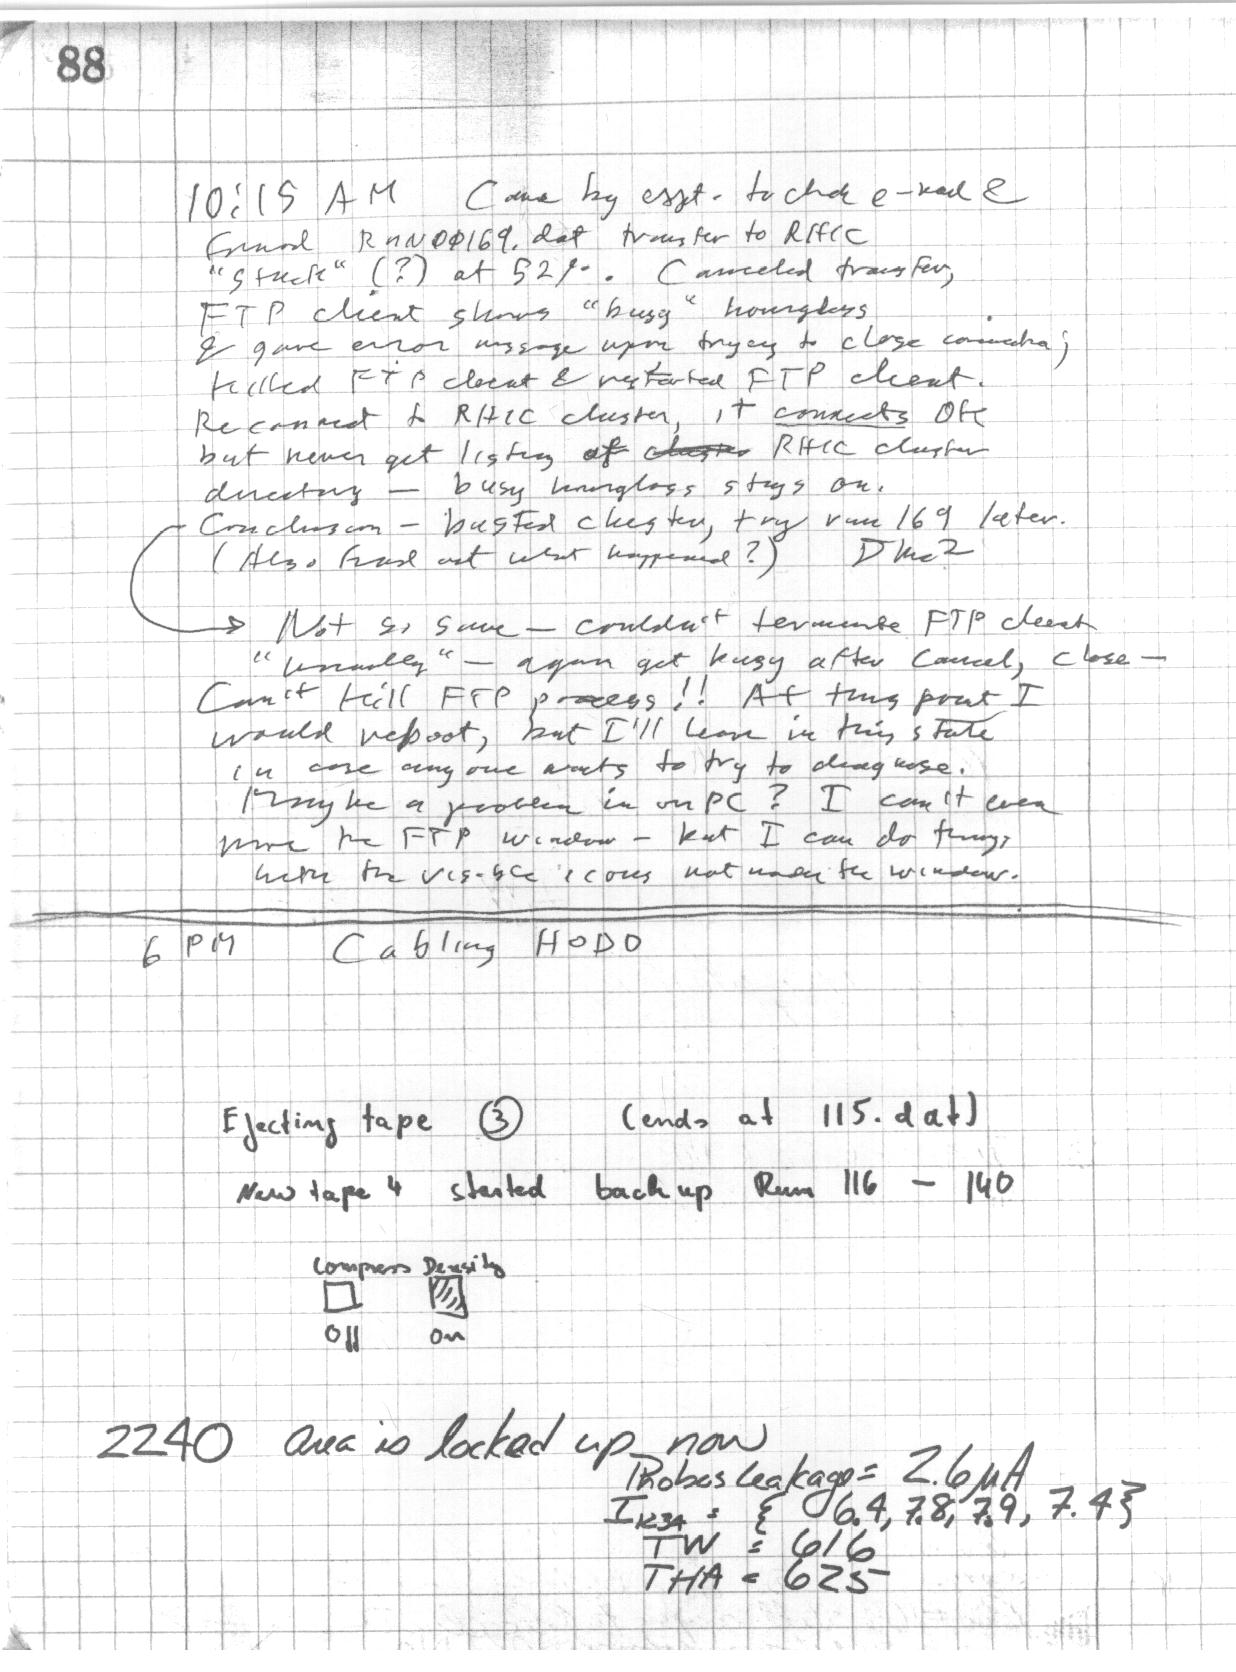 88
10:15 AM Came by expt. to check e-mail &
found RUN00169.dat transfer to RHIC
"stuck" (?) at 52%. Canceled transfer,
FTP client shows "busy" hourglass
& gave error message upon trying to close connection;
killed FTP client & restarted FTP client.
Reconnect to RHIC cluster, it connects OK
but never get listing of RHIC cluster
directory — busy hourglass stays on.
Conclusion — busted cluster, try run 169 later.
(Also find out what happened?)
Not so sure — couldn't terminate FTP client
"normally" — again get busy after cancel, close —
Can't kill FTP process!! At this point I
would reboot, but I'll leave in this state
in case anyone wants to try to diagnose.
Maybe a problem in our PC? I can't even
move the FTP window — but I can do things
with the visible icons not under the window.
6 PM Cabling HODO
Ejecting tape ③ (ends at 115.dat)
New tape 4 started backup Run 116 — 140
Compress Density
Off On
2240 area is locked up now
Phobos leakage = 2.6 μA
= { 6.4, 7.8, 7.9, 7.4}
TW = 616
THA = 625